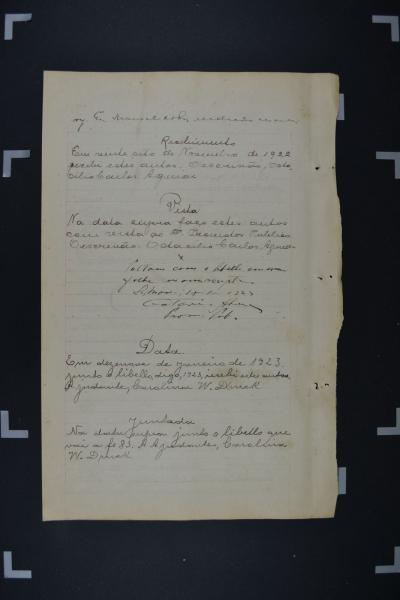 Recebimento
Em vinte oito de Novembro de 1922
recebi estes autos. O escrivão, Oda-
cilio Carlos Aguiar
Vista
Na data supra faço estes autos
com vista ao Dr. Promotor Publico
O escrivão Odacilio Carlos Aguiar
Voltam com o libello em uma
folha
1923
Prom. Pub.
Data
Em dezenove de Janeiro de 1923,
junto o libello, digo, 1923, recebi estes autos.
A Ajudante, Carolina W. Druck
Juntada
Na data supra junto o libello que
vai a fs 83. A Ajudante, Carolina
W. Druck